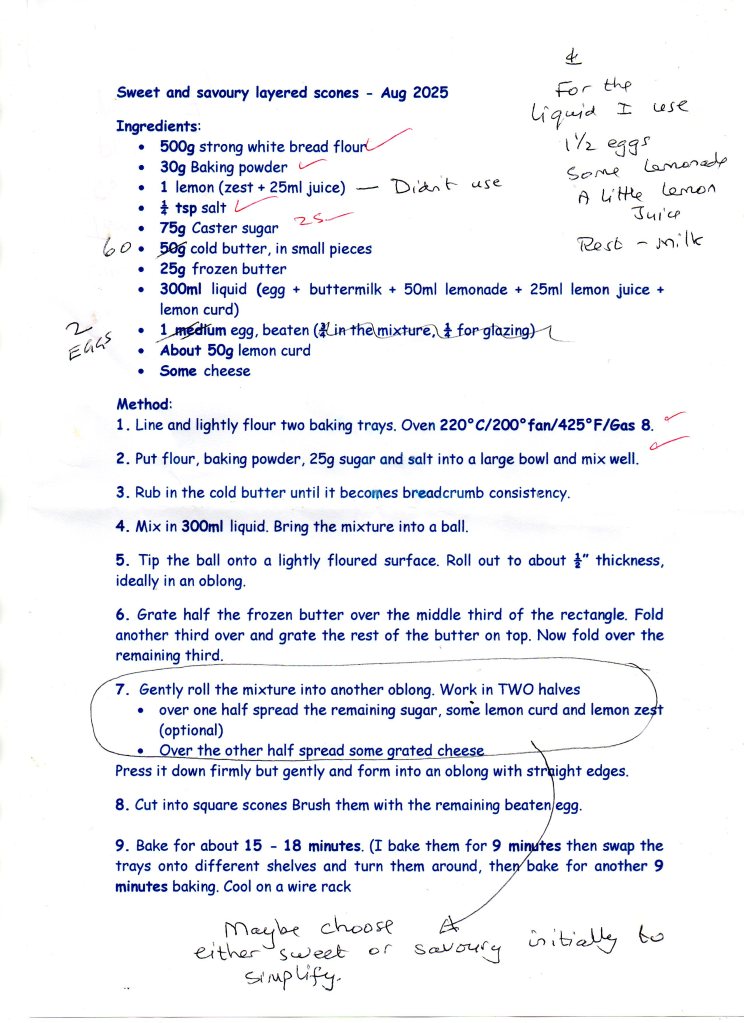 Sweet and savoury layered scones - Aug 2025
&
For the
liquid I use
1½ eggs
Some Lemonade
A little lemon
Juice
Rest - milk
Ingredients:
• 500g strong white bread flour
• 30g Baking powder
• 1 lemon (zest + 25ml juice) — Didn't use
• ¼ tsp salt
• 75g Caster sugar 25
60 • 50g cold butter, in small pieces
• 25g frozen butter
• 300ml liquid (egg + buttermilk + 50ml lemonade + 25ml lemon juice +
lemon curd)
2
EGGS
• 1 medium egg, beaten (¾ in the mixture, ¼ for glazing)
• About 50g lemon curd
• Some cheese
Method:
1. Line and lightly flour two baking trays. Oven 220°C/200°fan/425°F/Gas 8.
2. Put flour, baking powder, 25g sugar and salt into a large bowl and mix well.
3. Rub in the cold butter until it becomes breadcrumb consistency.
4. Mix in 300ml liquid. Bring the mixture into a ball.
5. Tip the ball onto a lightly floured surface. Roll out to about ½" thickness,
ideally in an oblong.
6. Grate half the frozen butter over the middle third of the rectangle. Fold
another third over and grate the rest of the butter on top. Now fold over the
remaining third.
7. Gently roll the mixture into another oblong. Work in TWO halves
• over one half spread the remaining sugar, some lemon curd and lemon zest
(optional)
• Over the other half spread some grated cheese
Press it down firmly but gently and form into an oblong with straight edges.
8. Cut into square scones Brush them with the remaining beaten egg.
9. Bake for about 15 - 18 minutes. (I bake them for 9 minutes then swap the
trays onto different shelves and turn them around, then bake for another 9
minutes baking. Cool on a wire rack
Maybe choose
either sweet or savoury initially to
simplify.